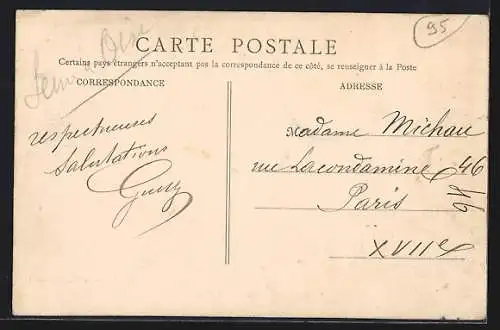 95
CARTE POSTALE
Certains pays étrangers n'acceptant pas la correspondance de ce côté, se renseigner à la Poste
CORRESPONDANCE
ADRESSE
respectueuses
Salutations
Madame Michau
rue Lacondamine 46
Paris
XVIIe